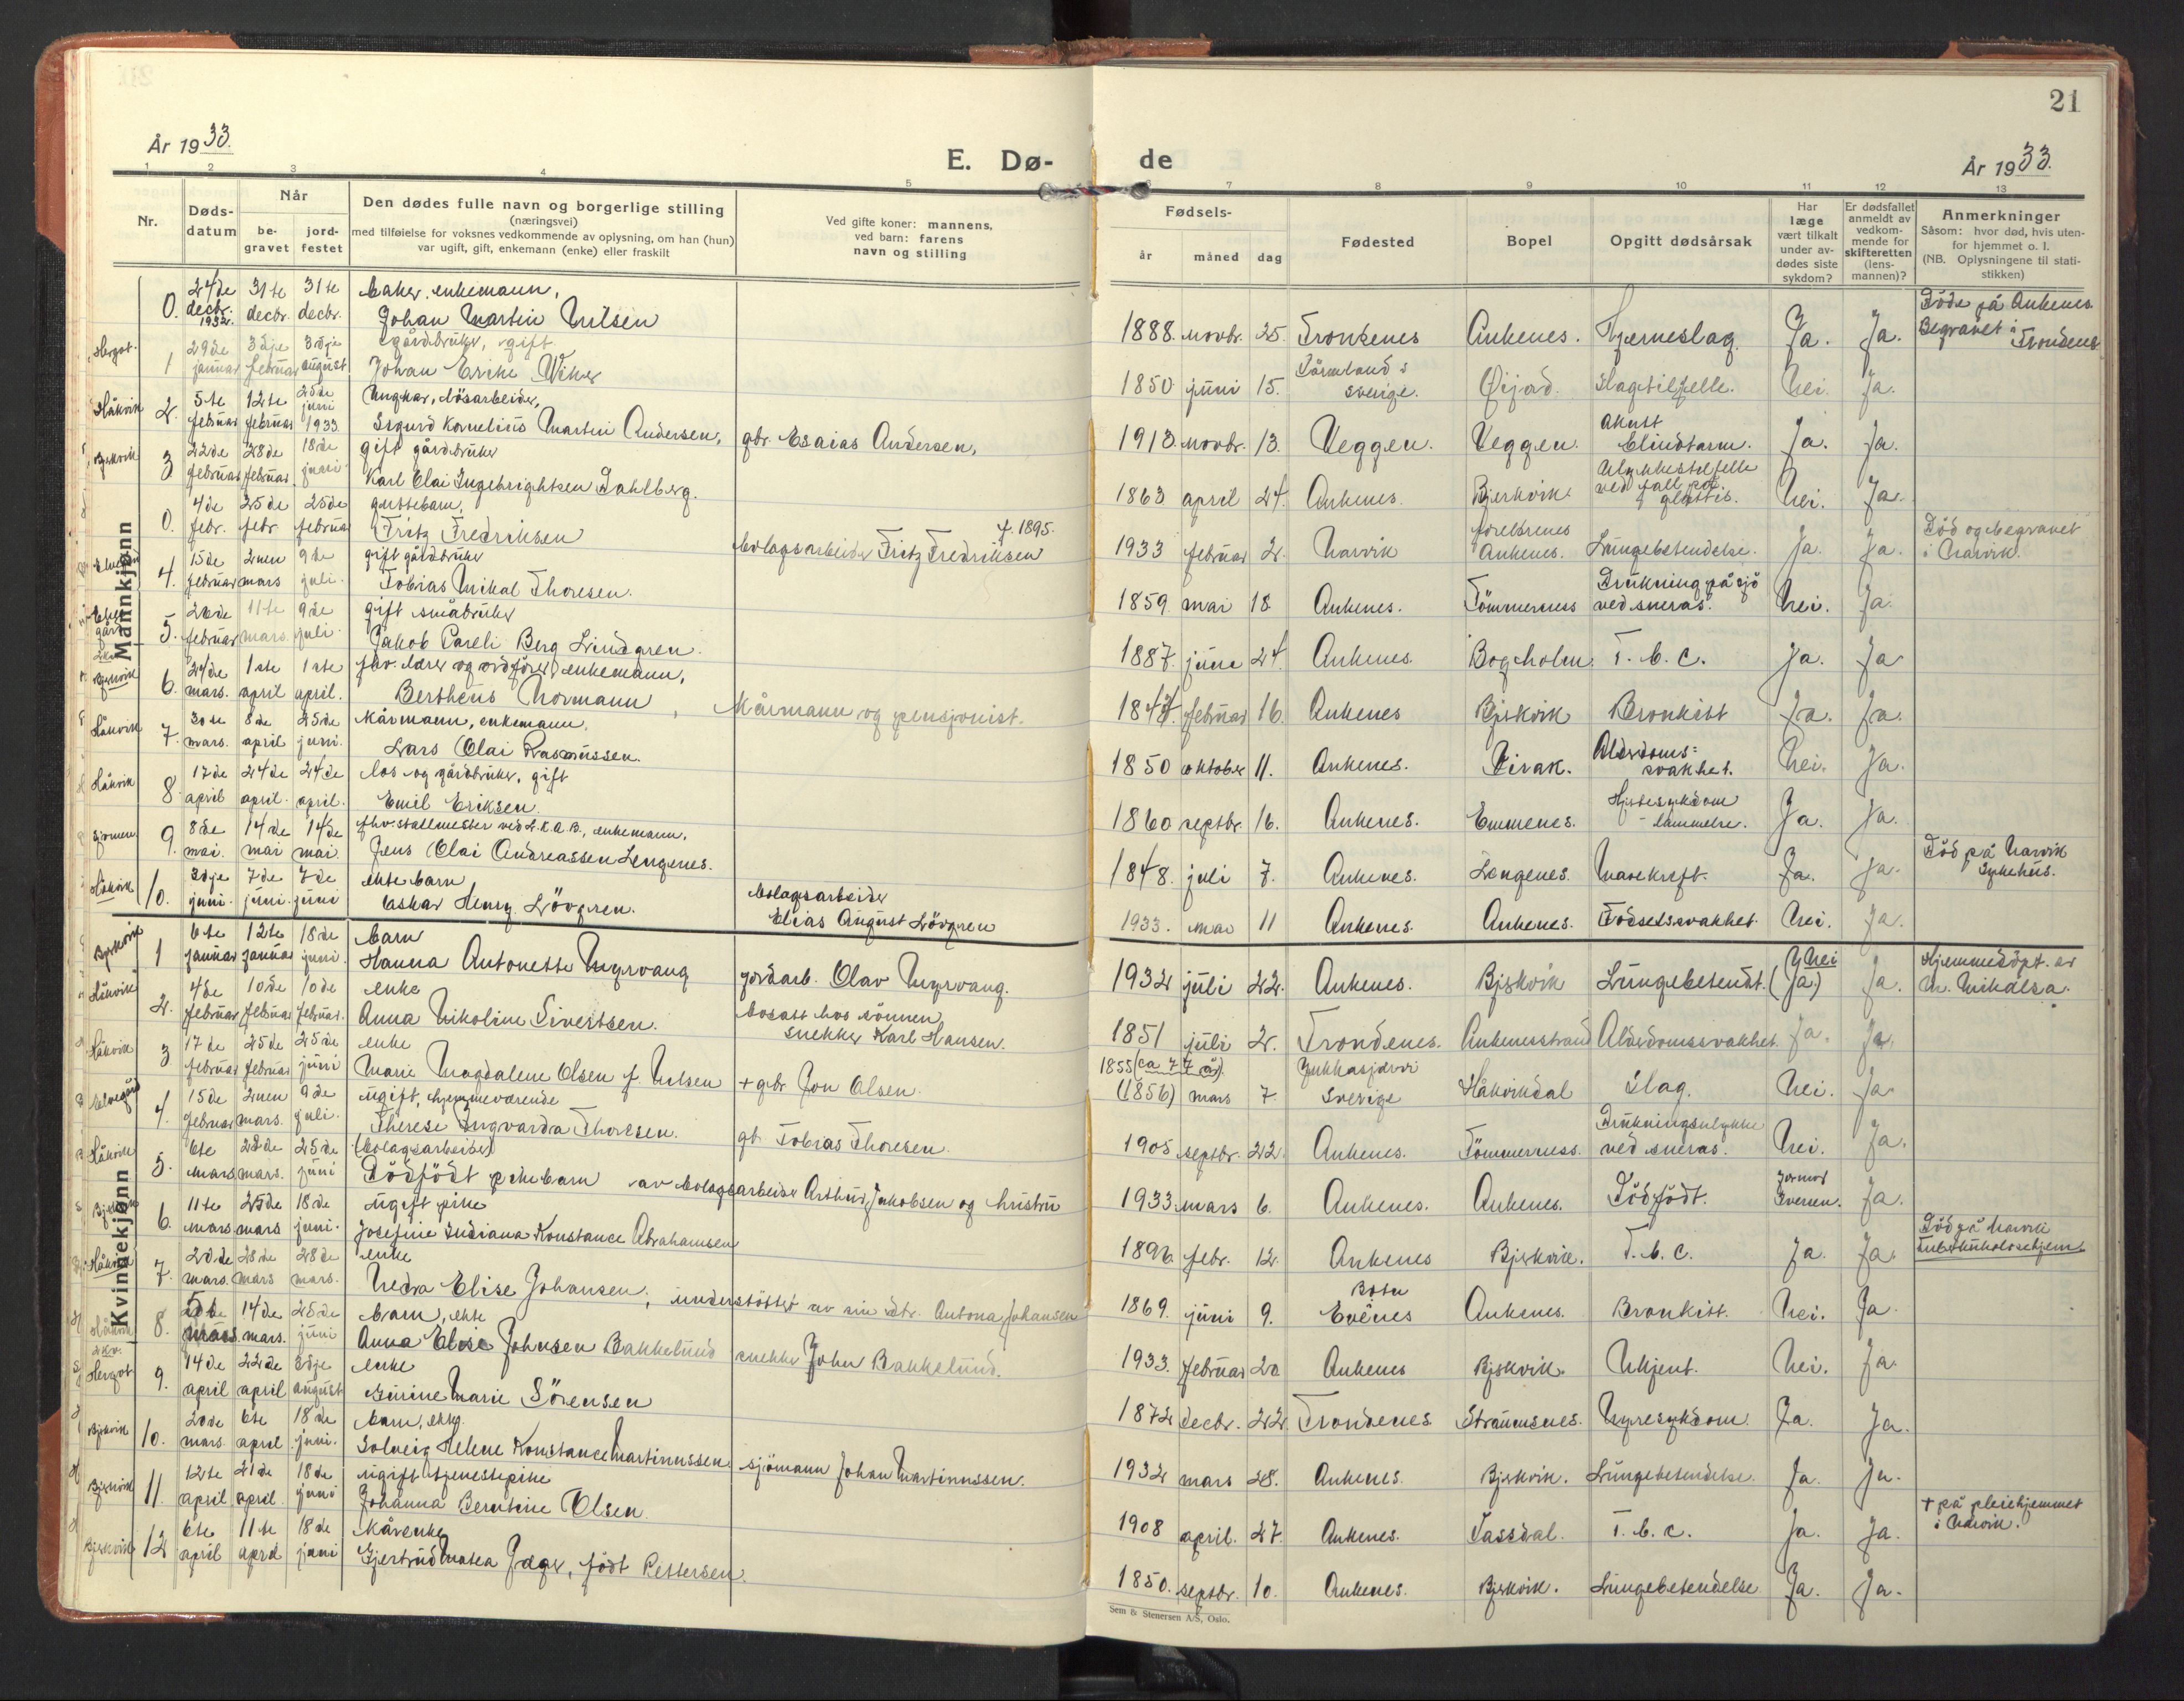 21
År 1933.
E. Dø-
de
År 1933.
1 2 3 4 5 6 7 8 9 10 11 12 13
Nr.
Døds-
datum
Når
be-
gravet
jord-
festet
Den dødes fulle navn og borgerlige stilling
(næringsvei)
med tilføielse for voksnes vedkommende av oplysning, om han (hun)
var ugift, gift, enkemann (enke) eller fraskilt
Ved gifte koner: mannens,
ved barn: farens
navn og stilling
Fødsels-
år måned dag
Fødested
Bopel
Opgitt dødsårsak
Har
læge
vært tilkalt
under av-
dødes siste
sykdom?
Er dødsfallet
anmeldt av
vedkom-
mende for
skifteretten
(lens-
mannen)?
Anmerkninger
Såsom: hvor død, hvis uten-
for hjemmet o. l.
(NB. Oplysningene til stati-
stikken)
Mannkjønn
0. 24de decbr. 1932. 31te decbr. 31te decbr. baker, enkemann,
Johan Martin Nilsen
1888. novbr. 25. Trondenes Ankenes. Hjerneslag. Ja. Ja. Döde på Ankenes. Begravet i Trondenes
Hergot. 1 29de januar 3dje februar 3dje august gårdbruker, gift.
Johan Erike Wiker
1850 juni 15. Värmland i Sverige. Öijord. Slagtilfelle. Nei. Ja.
Håkvik 2. 5te februar 12te februar 25de juni 1933. Ungkar, lösarbeider,
Sigurd Kornelius Martin Andersen, gbr. Esaias Andersen,
1913. novbr. 13. Veggen. Veggen. akutt blindtarm. Ja. Ja.
Bjerkvik 3 22de februar 28de februar 18de juni gift gårdbruker
Karl Olai Ingebrightsen Dahlberg.
1863 april 24. Ankenes. Bjerkvik. Ulykkestilfelle ved fall på glattis. Nei. Ja.
0. 4de febr. 25de febr. 25de februar guttebarn,
Fritz Fredriksen bolagsarbeider Fritz Fredriksen f. 1895.
1933 februar 2. Narvik foreldrenes Ankenes. Lungebetendelse. Ja. Ja. Död og begravet i Narvik.
4. 15de februar 2nen mars 9de juli. gift gårdbruker
Tobias Mikal Thoresen.
1859. mai 18. Ankenes. Tömmerness Drukning på sjö ved sneras. Nei. Ja.
5. 26de februar 11te mars. 9de juli. gift småbruker
Jakob Pareli Berg Lindgren.
1887. juni 24. Ankenes. Bogholm. T. b. C. Ja. Ja
Bjerkvik 6. 24de mars. 1ste april 1ste april. fhv. lærer og ordfører, enkemann,
Bertheus Normann, Kårmann og pensjonist.
1847. februar 16. Ankenes Bjerkvik Bronkitt Ja. Ja.
Håkvik 7. 30te mars. 8de april 25de juni. Kårmann, enkemann.
Lars Olai Rasmussen.
1850 oktober 11. Ankenes. Virak. Alderdoms= svakhet. Nei. Ja.
Håkvik 8. 17de april 24de april. 24de april. los og gårdbruker, gift
Emil Eriksen
1860 septbr. 16. Ankenes. Emmenes. Hjertesykdom - lammelse. Ja. Ja.
9. 8de mai. 14de mai 14de mai. fhv. stallmester ved L.K.A.B., enkemann.
Jens Olai Andreassen Lengenes.
1848. juli 7. Ankenes. Lengenes. Mavekreft. Ja. Ja. Död på Narvik Sykehus.
Håkvik 10. 3dje juni. 7de juni. 7de juni ekte barn
Oskar Henry Lövgren. bolagsarbeider
Elias August Lövgren
1933. mai 11 Ankenes. Ankenes. Födselssvakhet Nei. Ja.
Kvinnekjønn
Bjerkvik 1 6te januar 12te januar 18de juni. barn
Hanna Antonette Myrvang jordarb. Olav Myrvang.
1932 juli 22. Ankenes. Bjerkvik Lungebetendt. Nei (Ja.) Ja. Hjemmedöpt. av
Håkvik 2. 4de februar 10de februar 10de februar. enke
Anna Nikoline Sivertsen. bosatt hos sönnen
snekker Karl Hansen.
1851 juli 2. Trondenes. Ankenesstrand Alderdomssvakhet Ja. Ja.
Håkvik 3 17de februar 25de februar 25de juni enke
Marie Magdalene Olsen f. Nilsen + gbr. Jon Olsen.
1855 (ca 77 år). (1856) mars 7. Jukkasjärvi Sverige Håkvikdal Slag. Nei. Ja
Elvegård 4. 15de februar 2nen mars. 9de juli. ugift, hjemmeværende
Therese Ingvarda Thoresen. gb. Tobias Thoresen.
1905 septbr. 22. Ankenes. Tömmerness. Drukningsulykke ved sneras. Nei. Ja.
Håkvik 5. 6te mars 22de mars. 25de juni (bolagsarbeider)
Dödfödt pikebarn av bolagsarbeider Arthur Jakobsen og hustru
1933. mars 6. Ankenes. Ankenes. Dödfödt. Jormor Iversen. Ja.
6. 11te mars. 25de mars 18de juni. ugift pike
Josefine Indiana Konstance Abrahamsen
1896. febr. 12. Ankenes Bjerkvik. T. b. C. Ja. Ja. Död på Narvik Tuberkulosehjem.
Håkvik 7. 20de mars. 28de mars 28de mars. enke
Nedra Elise Johansen, understöttet av sin dtr. Antona Johansen
1869. juni 9. Evenes Ankenes. Bronkitt. Nei. Ja
8. 5te mars 14de mars. 25de juni barn, ekte
Anna Elise Johnsen Bakkelund snekker John Bakkelund.
1933. februar 20 Ankenes Bjerkvik. Ukjent. Nei. Ja.
Hergot 9. 14de april 22de april 3dje august enke
Gurine Marie Sörensen
1872 decbr. 22. Trondenes Straumsnes. Nyresykdom. Ja. Ja.
Bjerkvik 10. 20de mars. 6te april 18de juni. barn, ekte.
Solveig Helene Konstance Martinussen sjömann Johan Martinussen.
1932 mars 28. Ankenes. Bjerkvik. Lungebetendelse. Ja. Ja.
Bjerkvik 11. 12te april 21de april. 18de juni ugift tjenestepike
Johanna Berntine Olsen
1908 april. 27. Ankenes. Tassdal. T. b. c. Ja. Ja. + på pleiehjemmet i Narvik.
Bjerkvik 12 6te april 11te april 18de juni Kårenke
Gjertrud Matea Jager, födt Pettersen.
1850. septbr. 10. Ankenes. Bjerkvik. Lungebetendelse Ja. Ja.
Sem & Stenersen A/S, Oslo.